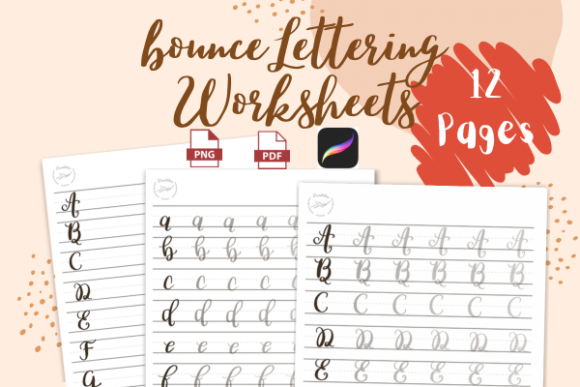 bounce Lettering
Worksheets
12
Pages
PNG
PDF
A
B
C
D
E
F
G
a a a a a a
b b b b b b
c c c c c c
d d d d d d
e e e e e e
A A A A A A
B B B B B B
C C C C C C
D D D D D D
E E E E E E